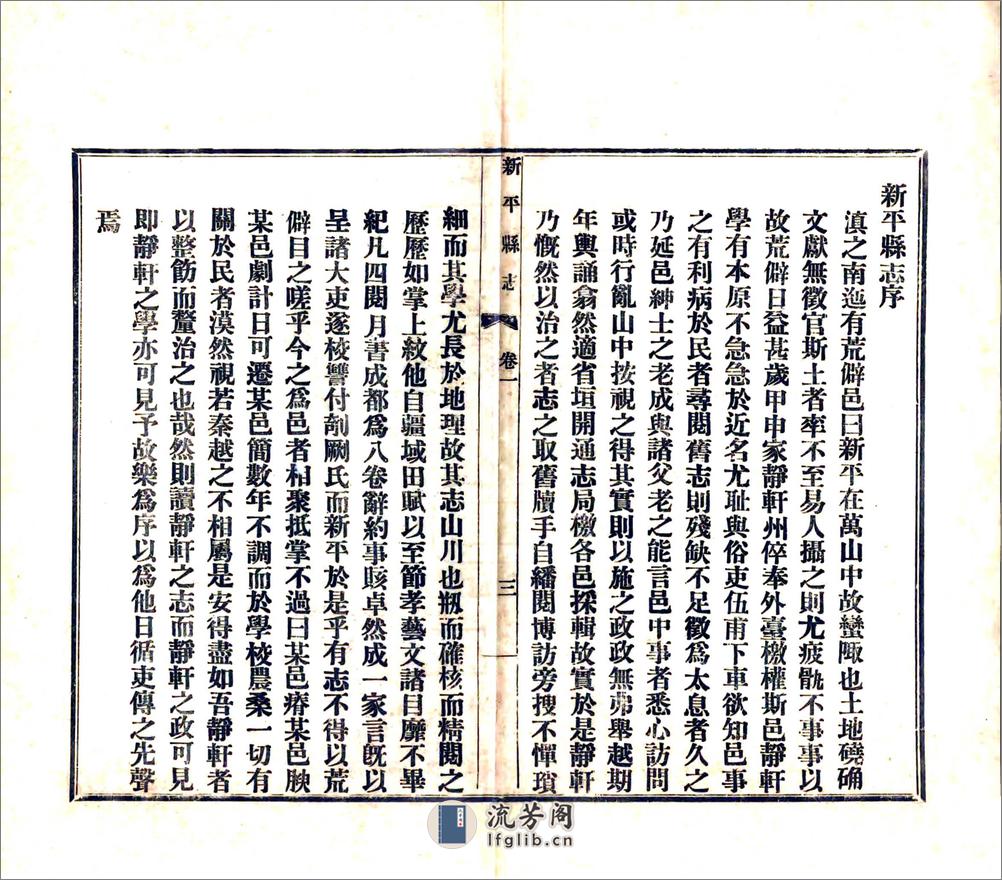 新平縣志序
滇之南迤有荒僻邑曰新平在萬山中故蠻陬也土地磽确
文獻無徵官斯土者率不至易人攝之則尤疲骫不事事以
故荒僻日益甚歲甲申家靜軒州倅奉外臺檄權斯邑靜軒
學有本原不急急於近名尤耻與俗吏伍甫下車欲知邑事
之有利病於民者尋閱舊志則殘缺不足徵爲太息者久之
乃延邑紳士之老成與諸父老之能言邑中事者悉心訪問
或時行亂山中按視之得其實則以施之政政無弗舉越期
年輿誦翕然適省垣開通志局檄各邑採輯故實於是靜軒
乃慨然以治之者志之取舊牘手自繙閱博訪旁搜不憚瑣
新平縣志 卷一 三
細而其學尤長於地理故其志山川也剏而確核而精閱之
歷歷如掌上紋他自疆域田賦以至節孝藝文諸目靡不畢
紀凡四閱月書成都爲八卷辭約事賅卓然成一家言旣以
呈諸大吏遂校讐付剞劂氏而新平於是乎有志不得以荒
僻目之嗟乎今之爲邑者相聚抵掌不過曰某邑瘠某邑腴
某邑劇計日可遷某邑簡數年不調而於學校農桑一切有
關於民者漠然視若秦越之不相屬是安得盡如吾靜軒者
以整飭而釐治之也哉然則讀靜軒之志而靜軒之政可見
即靜軒之學亦可見予故樂爲序以爲他日循吏傳之先聲
焉
流芳阁
lfglib.cn